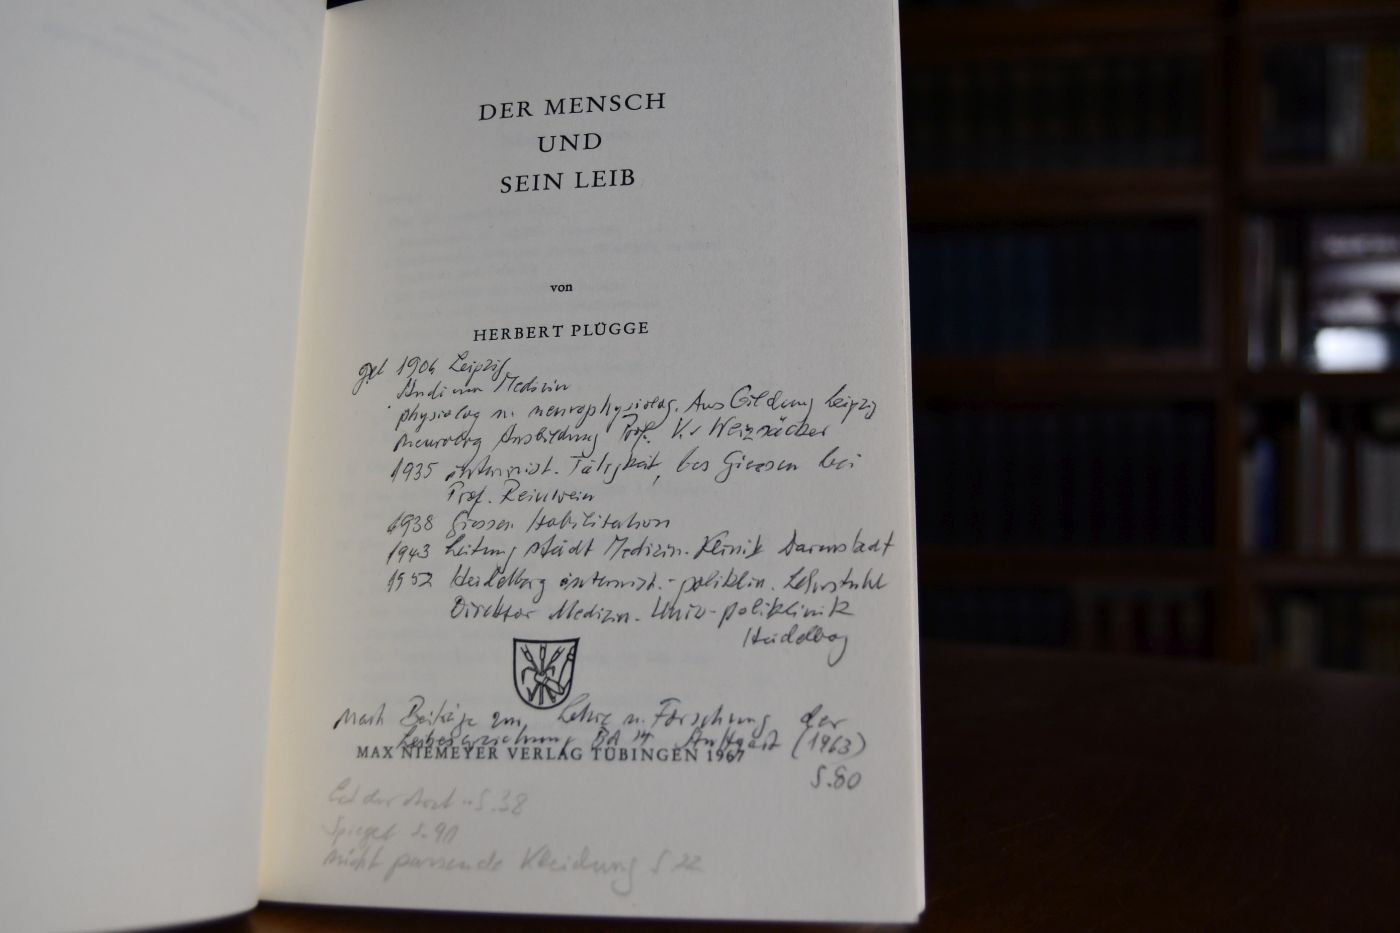 DER MENSCH
UND
SEIN LEIB
von
HERBERT PLÜGGE
geb 1906 Leipzig
Studium Medizin
physiolog u. neurophysiolog. Ausbildung Leipzig
Neurolog Ausbildung Prof. V. v Weizsäcker
1935 internist. Tätigkeit, bes Giessen bei
Prof. Reinwein
1938 Giessen Habilitation
1943 Leitung städt Medizin. Klinik Darmstadt
1952 Heidelberg internist.-poliklin. Lehrstuhl
Direktor Medizin. Univ-poliklinik
Heidelberg
Nach Beiträge zur Lehre u. Forschung der
Leibeserziehung Stuttgart (1963)
S.80
MAX NIEMEYER VERLAG TÜBINGEN 1967
S.38
Spiegel S.91
nicht passende Kleidung S 22